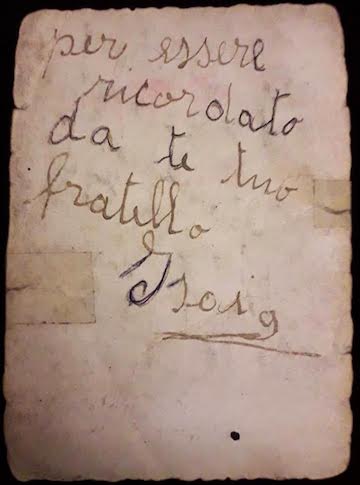 per essere
ricordato
da te tuo
fratello
Isaia